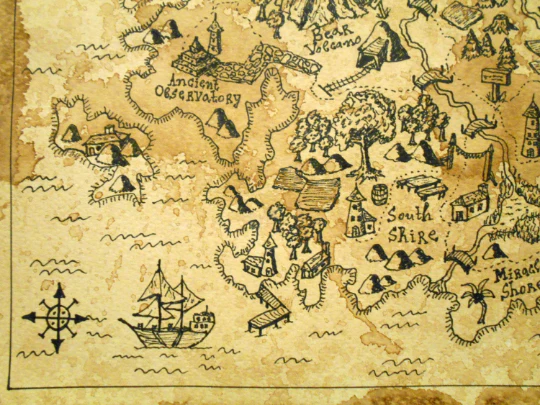 Bear
Volcano
Ancient
Observatory
South
Shire
Miracle
Shore